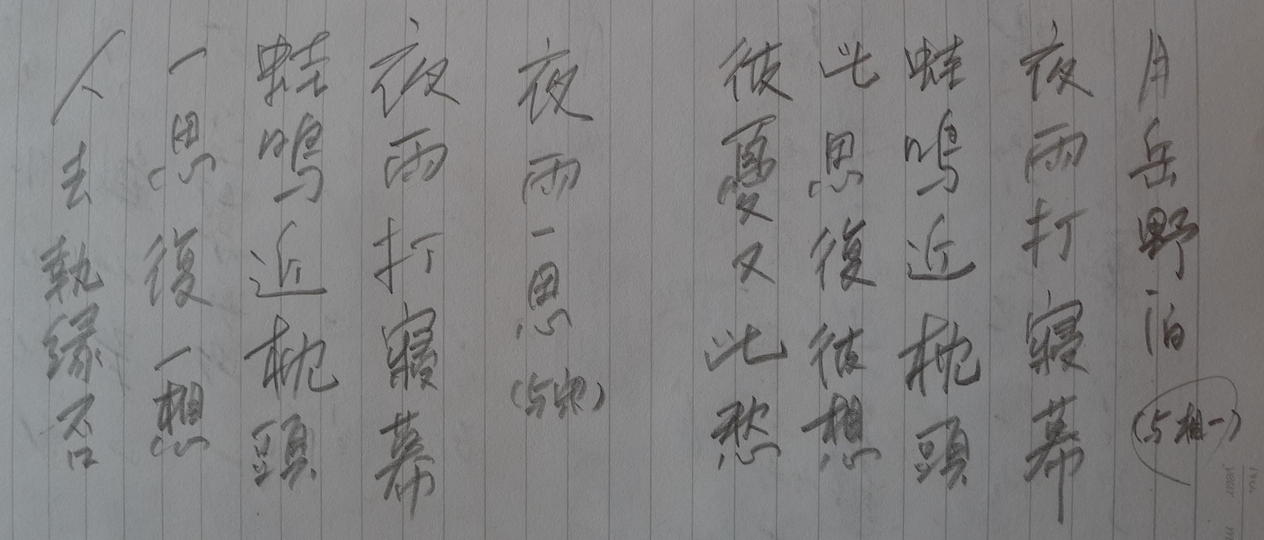 月岳野泊(与相一)
夜雨打寢幕
蛙鳴近枕頭
此思復彼想
彼憂又此愁
夜雨一思(与忠)
夜雨打寢幕
蛙鳴近枕頭
一思復一想
人去執緣否